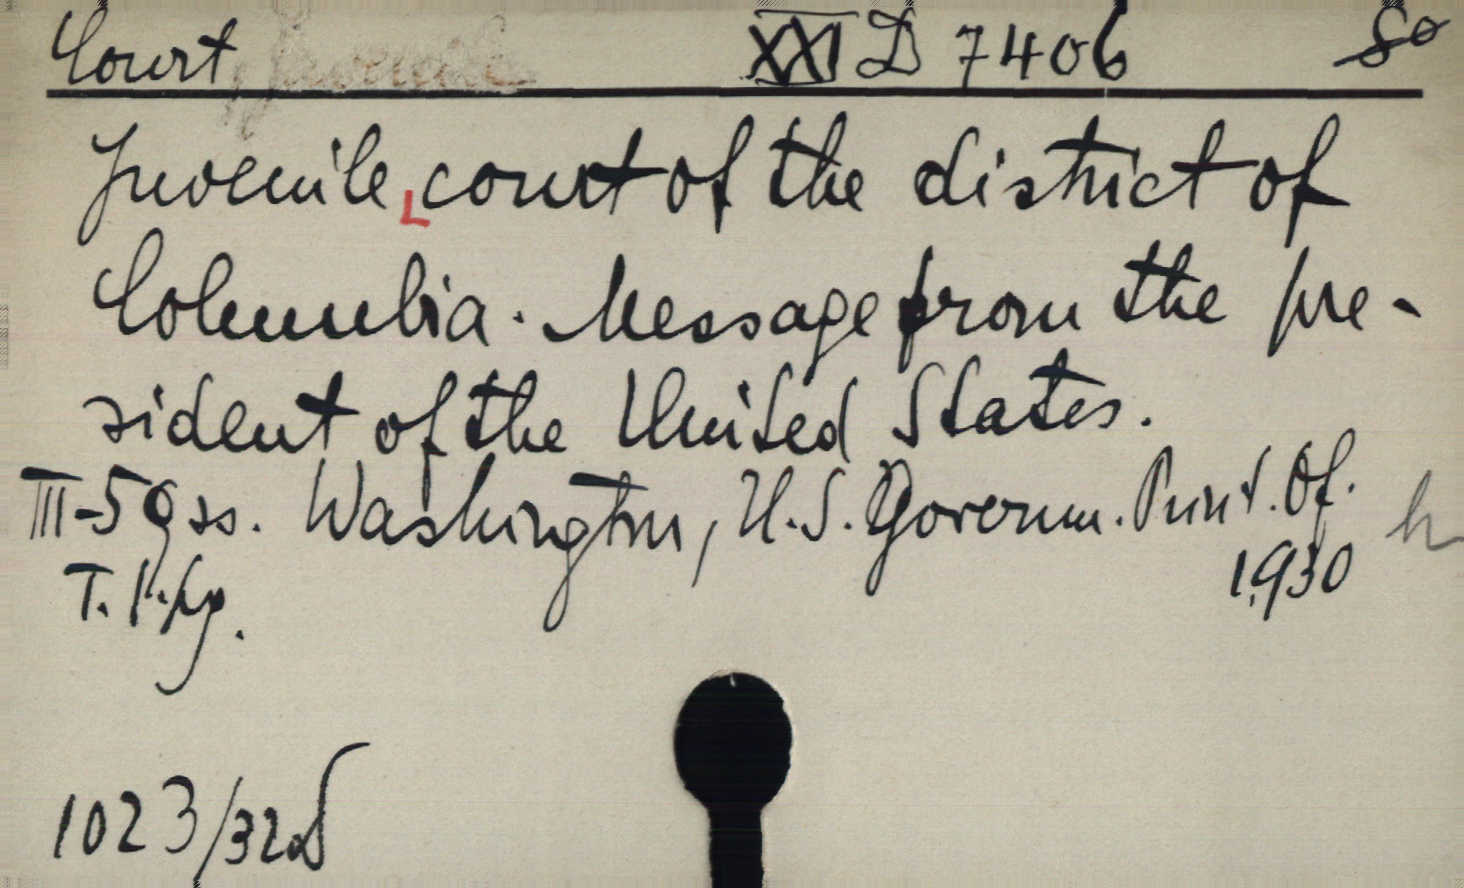 Court XXI D 7406 8º
Juvenile court of the district of
Columbia. Message from the pre-
sident of the United States.
III-59 ss. Washington, U.S. Governm. Print. Of.
1930
1023/32